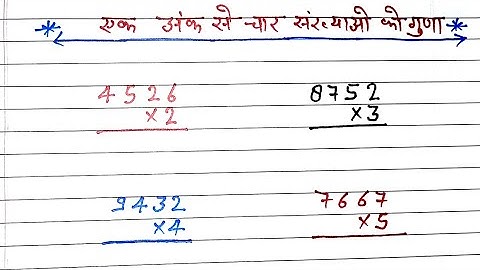 एक अंक से चार संख्याओ को गुणा
4526 8752
×2 ×3
9432 7667
×4 ×5